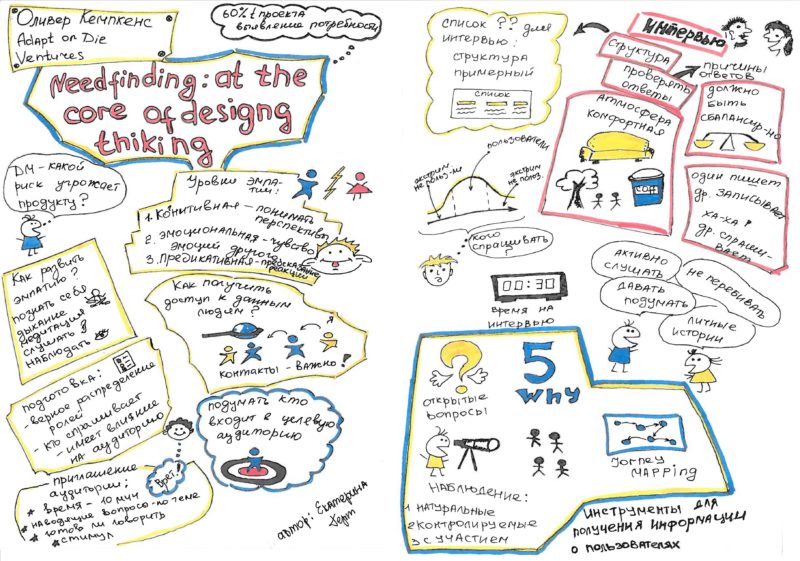 Оливер Кемпкенс
Adapt or Die
Ventures
60% t проекта
выявление потребности
Needfinding: at the
core of designg
thiking
DM - какой
риск угрожает
продукту?
Уровни эмпа-
тии:
1. Конитивная - понимать
перспективы
2. эмоциональная - чувство
эмоций другого
3. Предикативная - предсказание
реакции
Как развить
эмпатию?
познать себя
дыхание
медитация
слушать и
наблюдать
Как получить
доступ к данным
людям?
я
контакты - важно!
подготовка:
- верное распределение
ролей
- кто спрашивает
- имеет влияние
на аудиторию
подумать кто
входит в целевую
аудиторию
приглашение
аудитории:
время - 10 мин
наводящие вопросы по теме
готов ли говорить
стимул
Врёт!
автор: Екатерина
список ?? для
интервью:
структура
примерный
список
Интервью
структура
проверять
ответы
причины
ответов
атмосфера
комфортная
COFF
должно
быть
сбалансир-но
один пишет
др. записывает
ха-ха!
др. спраши-
вает
экстрим.
не польз-ли
пользователи
экстрим
не польз.
кого
спрашивать
?
00:30
время на
интервью
активно
слушать
не перебивать
давать
подумать
личные
истории
?
открытые
вопросы
5
why
наблюдение:
1 натуральные
2 контролируемые
3 с участием
Jorney
mapping
инструменты для
получения информации
о пользователях